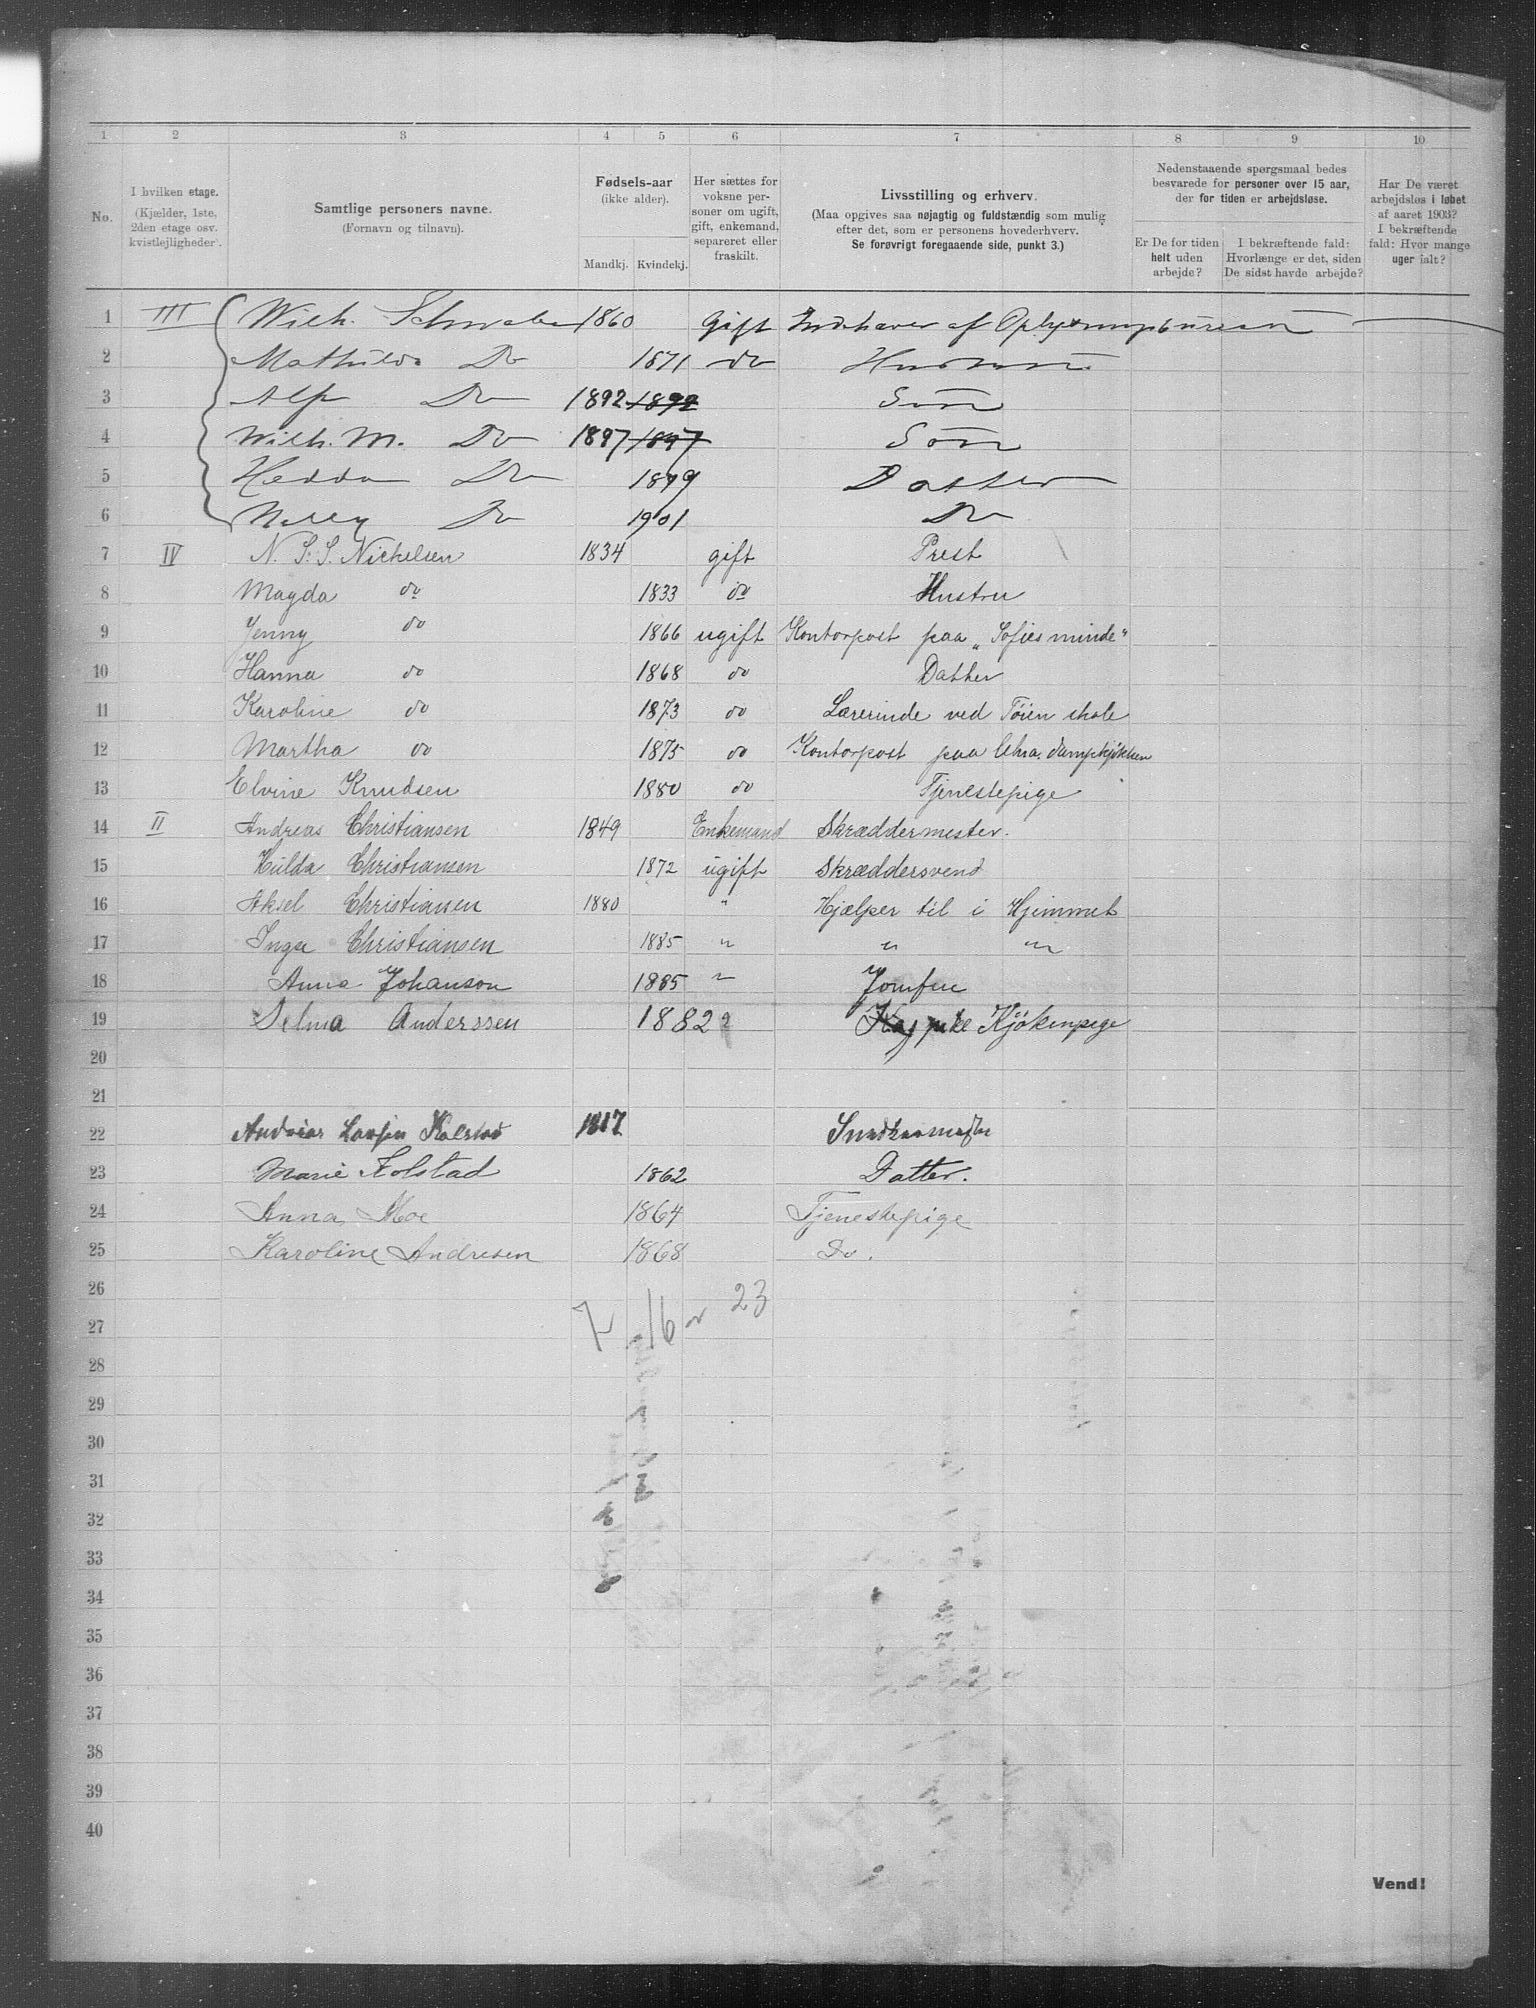 1 2 3 4 5 6 7 8 9 10
No.
I hvilken etage.
(Kjælder, 1ste,
2den etage osv.
kvistlejligheder).
Samtlige personers navne.
(Fornavn og tilnavn).
Fødsels-aar
(ikke alder).
Mandkj. Kvindekj.
Her sættes for
voksne per-
soner om ugift,
gift, enkemand,
separeret eller
fraskilt.
Livsstilling og erhverv.
(Maa opgives saa nøjagtig og fuldstændig som mulig
efter det, som er personens hovederhverv.
Se forøvrigt foregaaende side, punkt 3.)
Nedenstaaende spørgsmaal bedes
besvarede for personer over 15 aar,
der for tiden er arbejdsløse.
Er De for tiden
helt uden
arbejde?
I bekræftende fald:
Hvorlænge er det, siden
De sidst havde arbejde?
Har De været
arbejdsløs i løbet
af aaret 1903?
I bekræftende
fald: Hvor mange
uger ialt?
1 III Wilh. Schwabe 1860 Gift Indehaver af Oplysningsbureau
2 Mathilde Do 1871 do Hustru
3 Alf Do 1892 1892 Sön
4 Wilh. M. Do 1897 1897 Sön
5 Hedda Do 1899 Datter
6 Nelly Do 1901 Do
7 IV N. S. S. Nickelsen 1834 gift Prest
8 Magda do 1833 do Hustru
9 Jenny do 1866 ugift Kontorpost paa „Sofies minde"
10 Hanna do 1868 do Datter
11 Karoline do 1873 do Lærerinde ved Töien skole
12 Martha do 1875 do Kontorpost paa Chra. dampkjökken
13 Elvine Knudsen 1880 do Tjenestepige
14 II Andreas Christiansen 1849 Enkemand Skræddermester.
15 Hilda Christiansen 1872 ugift Skræddersvend
16 Aksel Christiansen 1880 " Hjælper til i Hjemmet
17 Inga Christiansen 1885 " " "
18 Anna Johanson 1885 " Jomfru
19 Selma Anderssen 1882 2 Kjökenpige
20
21
22 Andreas Kolstad 1817
23 Marie Kolstad 1862 Datter.
24 Anna Moe 1864 Tjenestepige
25 Karoline Andresen 1868 Do.
26
7 16 23
27
28
29
30
31
32
33
34
35
36
37
38
39
40
Vend!